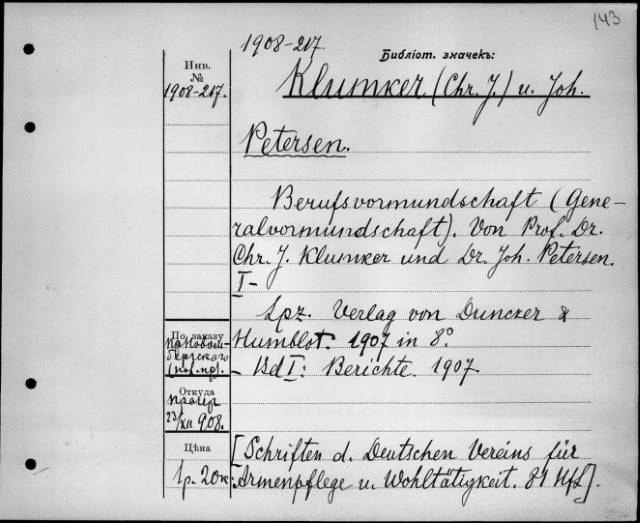 143
1908-217.
Библіот. значекъ:
Инв.
№
1908-217.
Klumker (Chr. J.) u. Joh.
Petersen.
Berufsvormundschaft (Gene-
ralvormundschaft). Von Prof. Dr.
Chr. J. Klumker und Dr. Joh. Petersen.
I-
Lpz. Verlag von Duncker &
Humblot. 1907 in 8°
- Bd I: Berichte. 1907
По заказу
Откуда
23/XII 908.
Цѣна
1р. 20к.
[Schriften d. Deutschen Vereins für
Armenpflege u. Wohltätigkeit. 81 Hft].